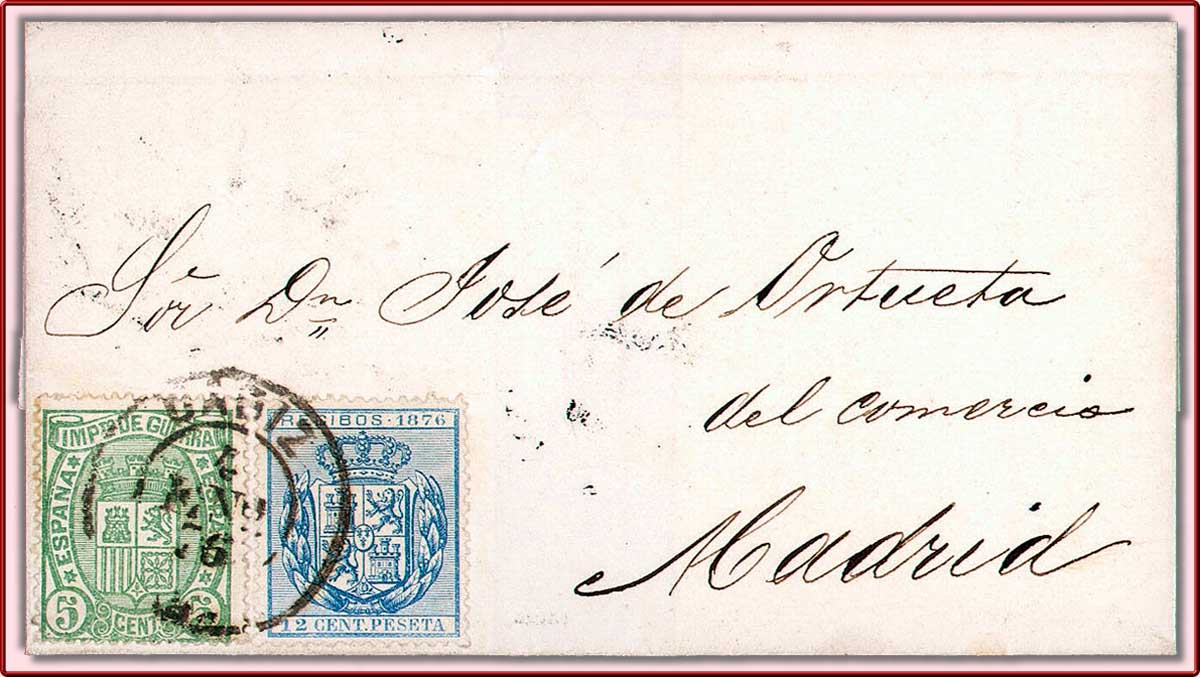 Sr. Dn. José de Ortueta
del comercio
Madrid
CADIZ
IMPTO DE GUERRA
ESPAÑA
5 CENT. 5
RECIBOS · 1876
12 CENT. PESETA